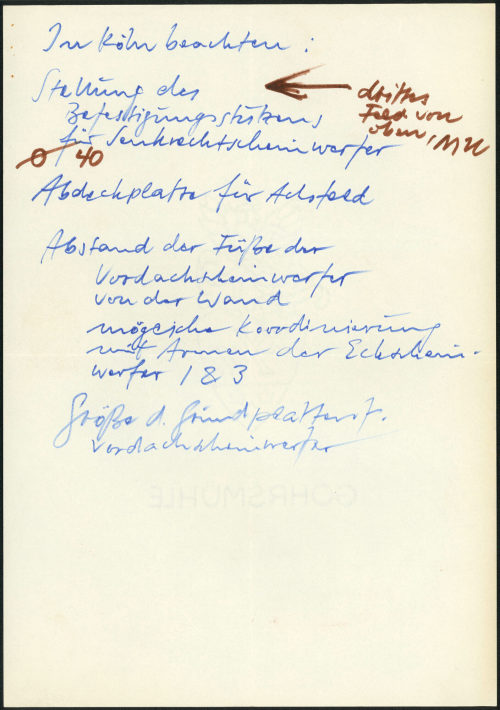 In Köln beachten:
Stellung des
Befestigungsstützens
für Senkrechtscheinwerfer
drittes
Feld von
oben,
Ø 40
Abdeckplatte für Achsfeld
Abstand der Füße der
Vordachscheinwerfer
von der Wand
mögliche Koordinierung
mit Armen der Eckschein-
werfer 1 & 3
Größe d. Grundplatten f.
Vordachscheinwerfer
GOHRSMÜHLE